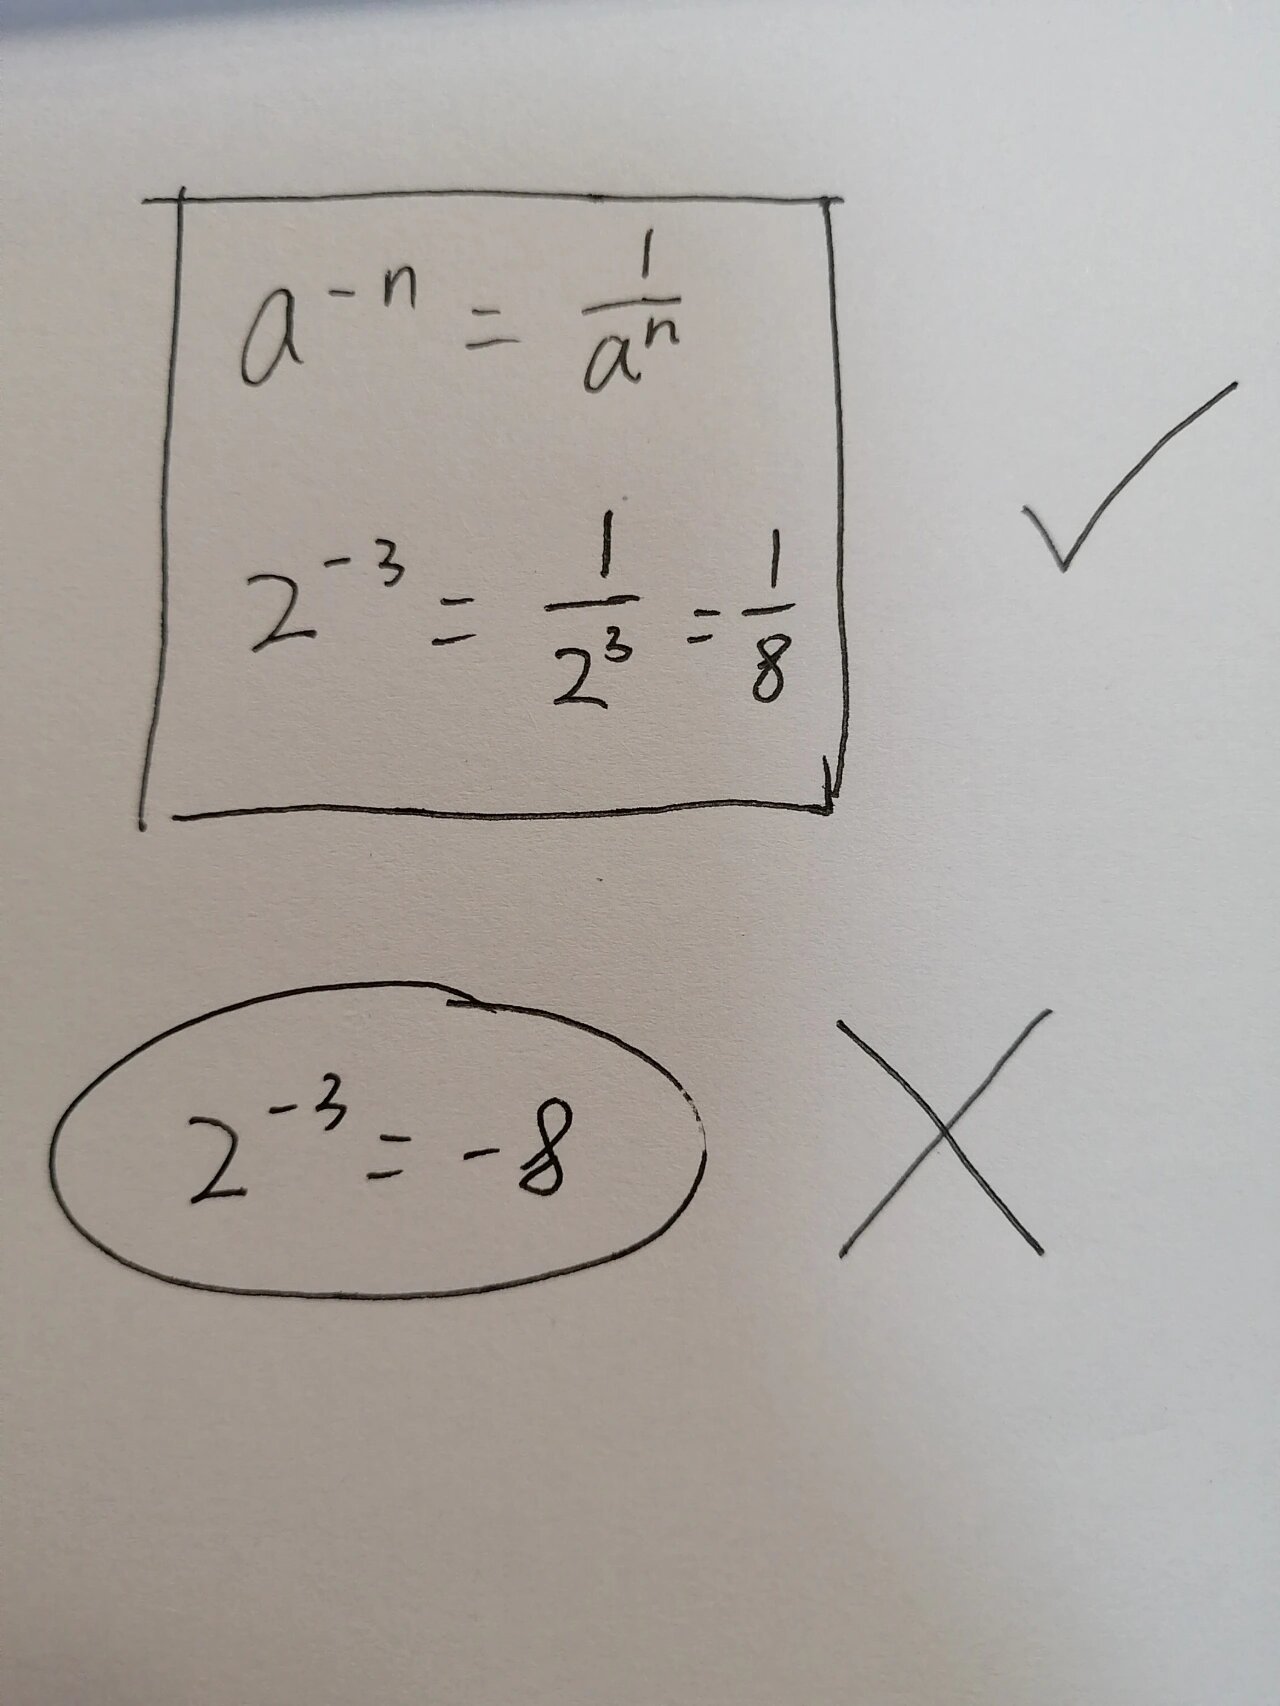 a⁻ⁿ = 1/aⁿ
2⁻³ = 1/2³ = 1/8
2⁻³ = -8